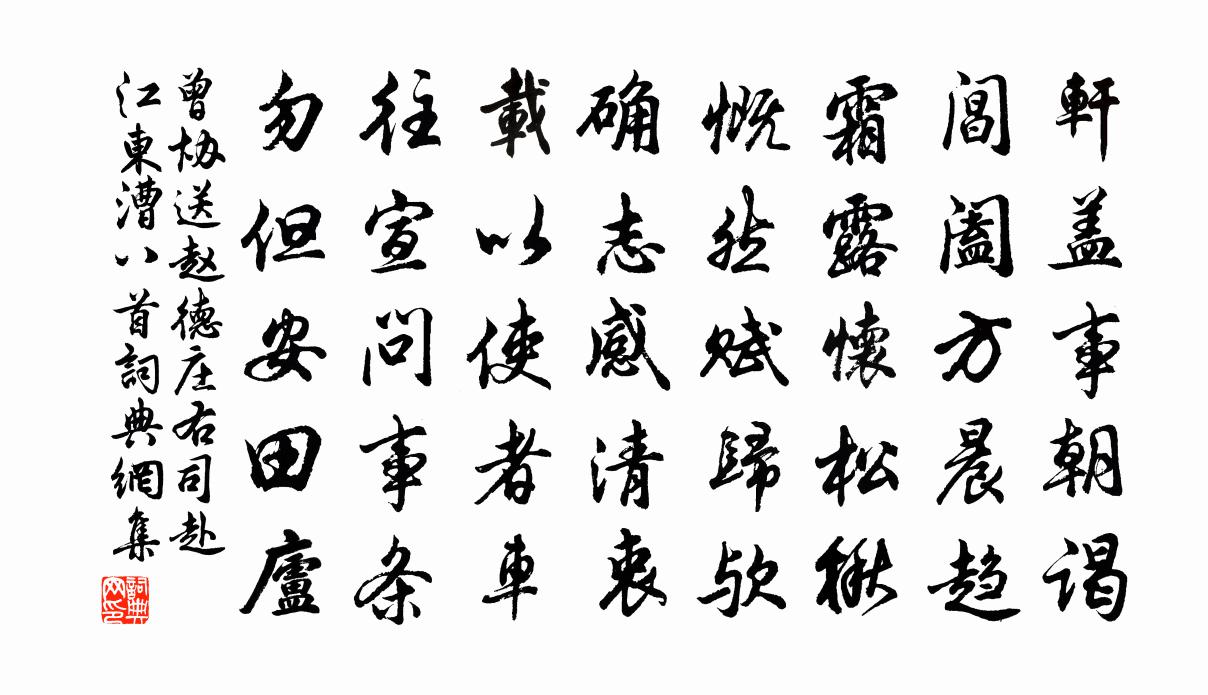 軒盖事朝谒
閶阖方晨趋
霜露懷松楸
慨然赋歸欤
确志感清衷
載以使者車
往宣问事条
勿但安田廬
曾协送赵德庄右司赴
江東漕八首詞典網集
詞典网印